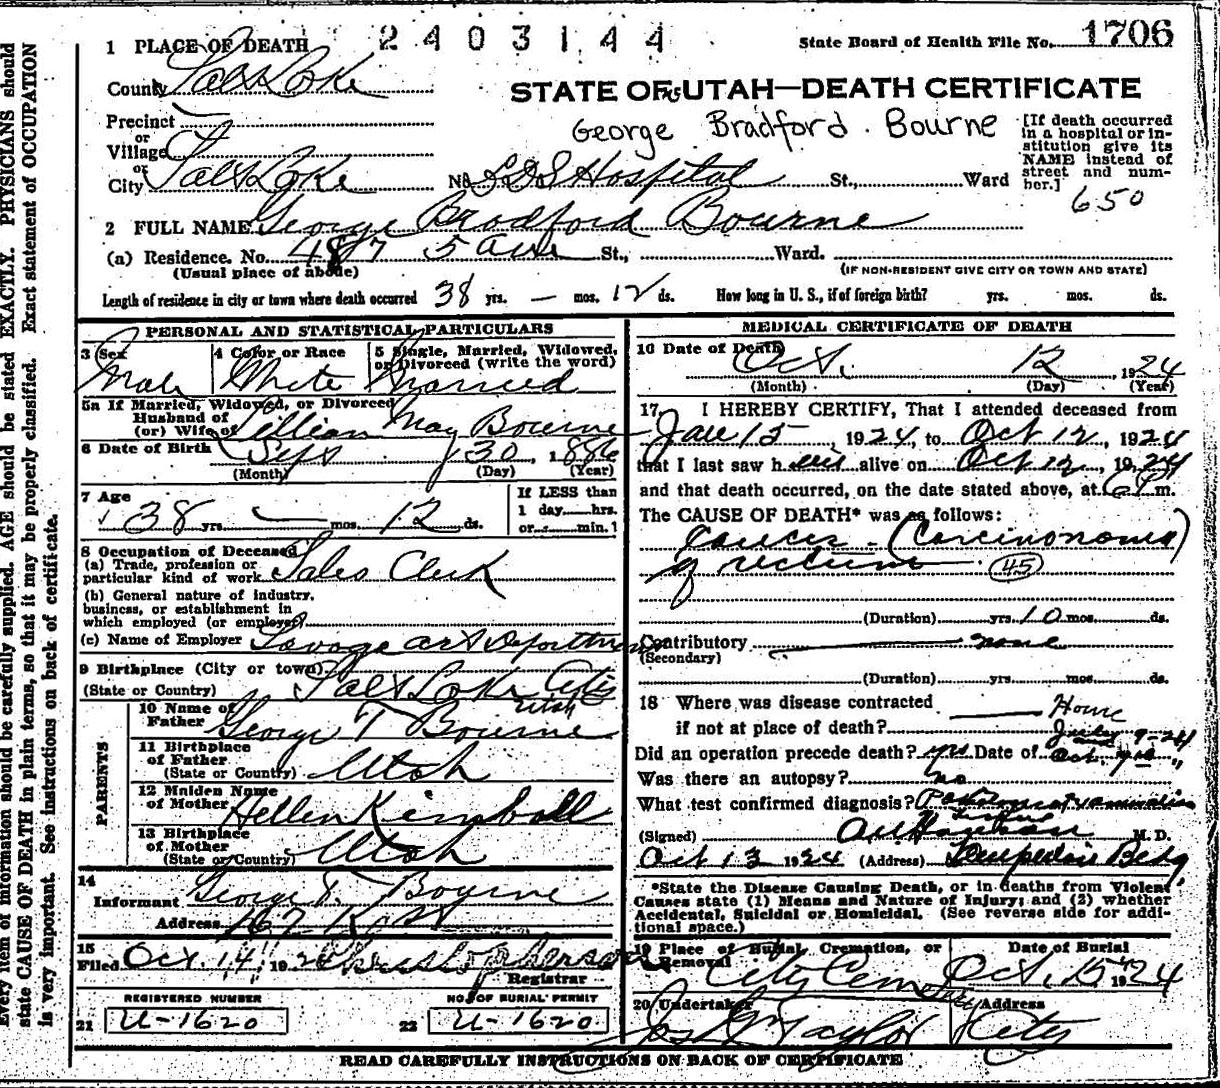 1 PLACE OF DEATH 2403144 State Board of Health File No. 1706
County Salt Lake
STATE OF UTAH—DEATH CERTIFICATE
Precinct
George Bradford Bourne
or
Village
or
City Salt Lake No. LDS Hospital St., Ward
[If death occurred
in a hospital or in-
stitution give its
NAME instead of
street and num-
ber.]
650
2 FULL NAME George Bradford Bourne
(a) Residence. No. 487 5 Ave St., Ward.
(Usual place of abode) (IF NON-RESIDENT GIVE CITY OR TOWN AND STATE)
Length of residence in city or town where death occurred 38 yrs. — mos. 12 ds. How long in U. S., if of foreign birth? yrs. mos. ds.
PERSONAL AND STATISTICAL PARTICULARS
3 Sex 4 Color or Race 5 Single, Married, Widowed,
or Divorced (write the word)
Male White Married
5a If Married, Widowed, or Divorced
Husband of
(or) Wife of Lillian May Bourne
6 Date of Birth Sept 30, 1886
(Month) (Day) (Year)
7 Age If LESS than
38 yrs. — mos. 12 ds. 1 day hrs.
or min. 1
8 Occupation of Deceased
(a) Trade, profession or
particular kind of work Sales Clerk
(b) General nature of industry,
business, or establishment in
which employed (or employer)
(c) Name of Employer Savage Art Department
9 Birthplace (City or town)
(State or Country) Salt Lake City
Utah
PARENTS
10 Name of
Father George T Bourne
11 Birthplace
of Father
(State or Country) Utah
12 Maiden Name
of Mother Hellen Kimball
13 Birthplace
of Mother
(State or Country) Utah
14
Informant George T. Bourne
Address
15
Filed Oct. 14, 1924
Registrar
REGISTERED NUMBER NO. OF BURIAL PERMIT
21 U-1620 22 U-1620
MEDICAL CERTIFICATE OF DEATH
16 Date of Death
Oct. 12, 1924
(Month) (Day) (Year)
17 I HEREBY CERTIFY, That I attended deceased from
Jan 15, 1924, to Oct 12, 1924
that I last saw him alive on Oct 12, 1924
and that death occurred, on the date stated above, at 6 P.m.
The CAUSE OF DEATH* was as follows:
Cancer - (Carcinonoma)
of rectum 45
(Duration) yrs. 10 mos. ds.
Contributory none
(Secondary)
(Duration) yrs. mos. ds.
18 Where was disease contracted
if not at place of death? Home
Did an operation precede death? yes Date of July 9-24
Oct.
Was there an autopsy? no
What test confirmed diagnosis?
(Signed) M. D.
Oct 13 1924 (Address) Templeton Bldg
*State the Disease Causing Death, or in deaths from Violent
Causes state (1) Means and Nature of Injury; and (2) whether
Accidental, Suicidal or Homicidal. (See reverse side for addi-
tional space.)
19 Place of Burial, Cremation, or
Removal Date of Burial
City Cem Oct. 15 1924
20 Undertaker Address
Jos Wm Taylor City
READ CAREFULLY INSTRUCTIONS ON BACK OF CERTIFICATE
Every item of information should be carefully supplied. AGE should be stated EXACTLY. PHYSICIANS should
state CAUSE OF DEATH in plain terms, so that it may be properly classified. Exact statement of OCCUPATION
is very important. See instructions on back of certificate.